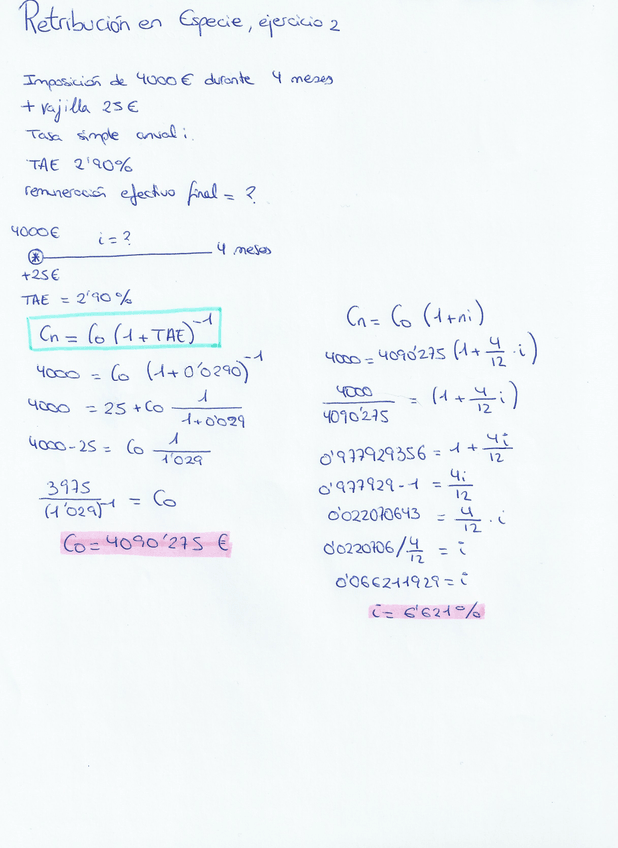 Retribución en Especie, ejercicio 2
Imposición de 4000 € durante 4 meses
+ vajilla 25 €
Tasa simple anual i.
TAE 2'90%
remuneración efectivo final = ?
4000€ i = ?
4 meses
+25€
TAE = 2'90%
Cn = Co (1 + TAE)^-1
4000 = Co (1+0'0290)^-1
4000 = 25 + Co 1/(1+0'029)
4000 - 25 = Co 1/1'029
3975/(1'029)^-1 = Co
Co = 4090'275 €
Cn = Co (1+ni)
4000 = 4090'275 (1 + 4/12 · i)
4000/4090'275 = (1 + 4/12 i)
0'977929356 = 1 + 4i/12
0'977929 - 1 = 4i/12
0'022070643 = 4/12 · i
0'0220706 / 4/12 = i
0'066211929 = i
i = 6'621 %